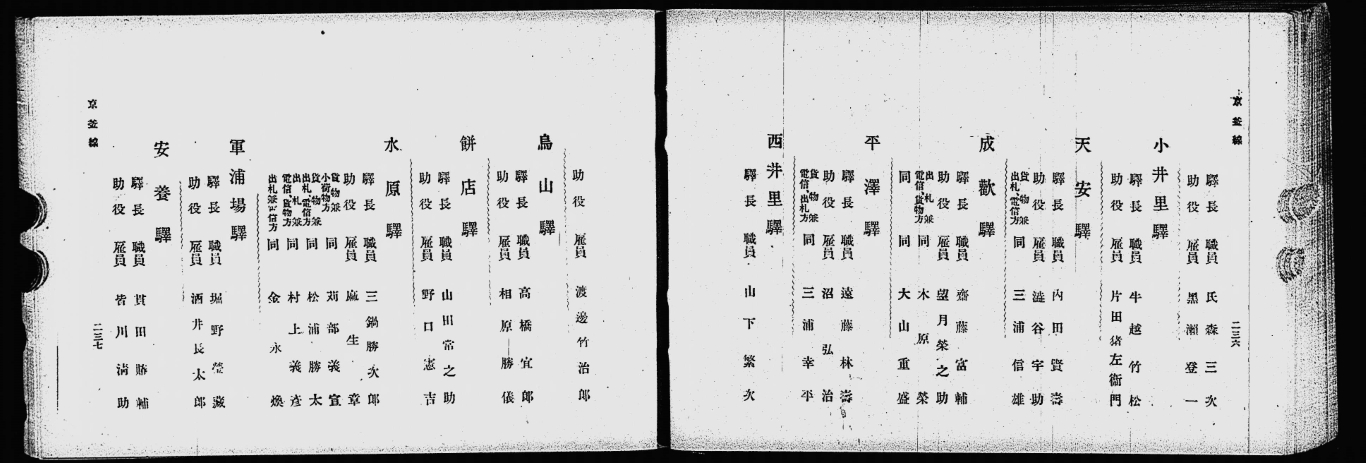 京釜線
二三六
驛長 職員 氏森三次
助役 雇員 黑瀬登一
小井里驛
驛長 職員 牛越竹松
助役 雇員 片田猪左衞門
天安驛
驛長 職員 内田賢壽
助役 雇員 澁谷宇助
貨物並出札電信方 同 三浦信雄
成歡驛
驛長 職員 齋藤富輔
助役 雇員 望月榮之助
出札並電信、貨物方 同 木原榮
同 同 大山重盛
平澤驛
驛長 職員 遠藤林壽
助役 雇員 沼弘治
貨物並電信、出札方 同 三浦幸平
西井里驛
驛長 職員 山下繁次
助役 雇員 渡邊竹治郎
烏山驛
驛長 職員 高橋宜郎
助役 雇員 相原勝儀
餠店驛
驛長 職員 山田常之助
助役 雇員 野口憲吉
水原驛
驛長 職員 三鍋勝次郎
助役 雇員 麻生章
貨物並小荷物方 同 苅部義宣
貨物並出札、電信方 同 松浦勝太
出札並電信、貨物方 同 村上義彦
出札並電信方 同 金永煥
軍浦場驛
驛長 職員 堀野瑩藏
助役 雇員 酒井長太郎
安養驛
驛長 職員 貫田勝輔
助役 雇員 皆川清助
京釜線
二三七